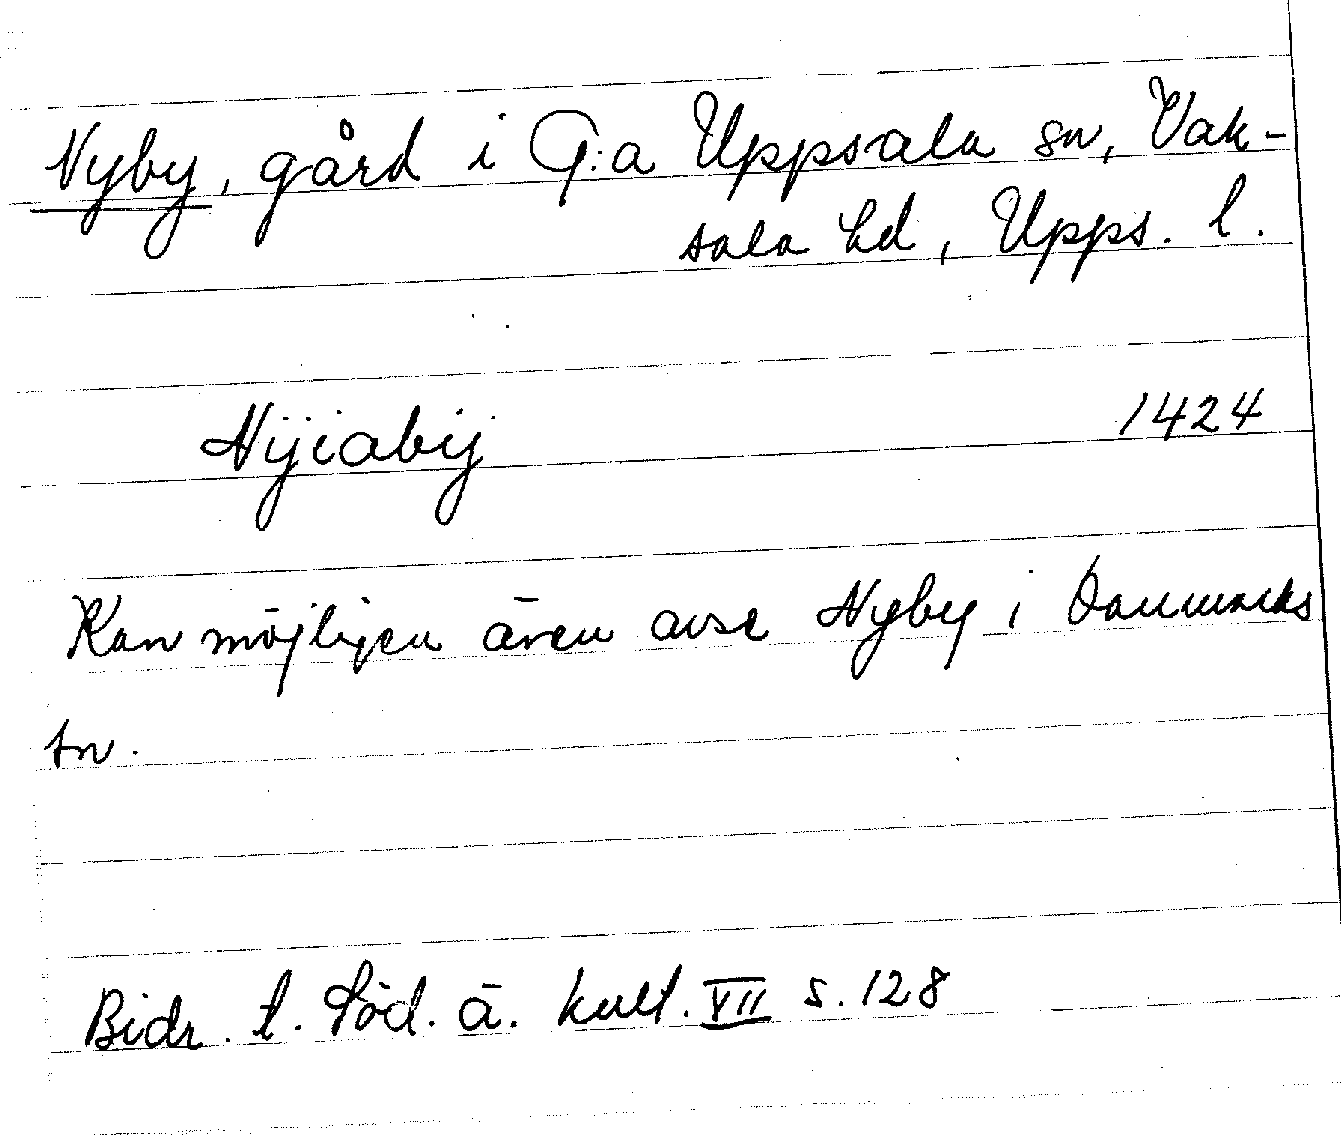 Nyby, gård i G:a Uppsala sn, Vak-
sala hd, Upps. l.
Nÿiabÿ 1424
Kan möjligen även avse Nyby i Danmarks
sn.
Bidr. t. Söd. ä. kult. VII s. 128